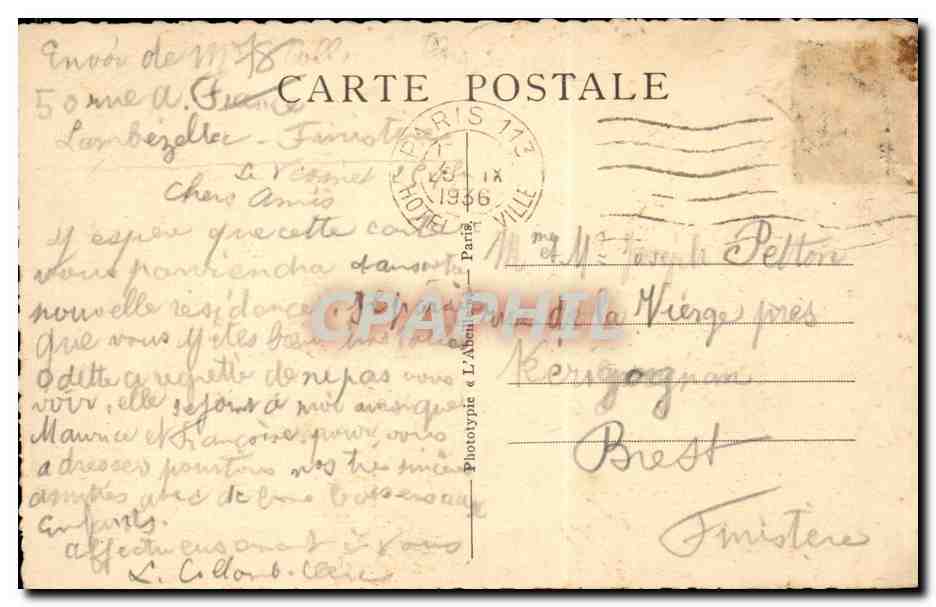 Envoi de
50 rue A. France
CARTE POSTALE
Lambézellec - Finistère
PARIS 113
IX
1936
HOTEL VILLE
Le Vésinet
Chers Amis
J'espère que cette carte
vous parviendra dans votre
nouvelle résidence. J'espère
que vous y êtes bien
Odette a regretté de ne pas vous
voir, elle se joint à moi ainsi que
Maurice et Françoise pour vous
adresser pour tous nos très sincères
amitiés avec de bons baisers aux
Enfants.
affectueusement à vous
L. Collomb
Phototypie « L'Abeille », Paris.
Mme et Mr Joseph Petton
rue de la Vierge près
Kerigorgnan
Brest
Finistère
CPAPHIL